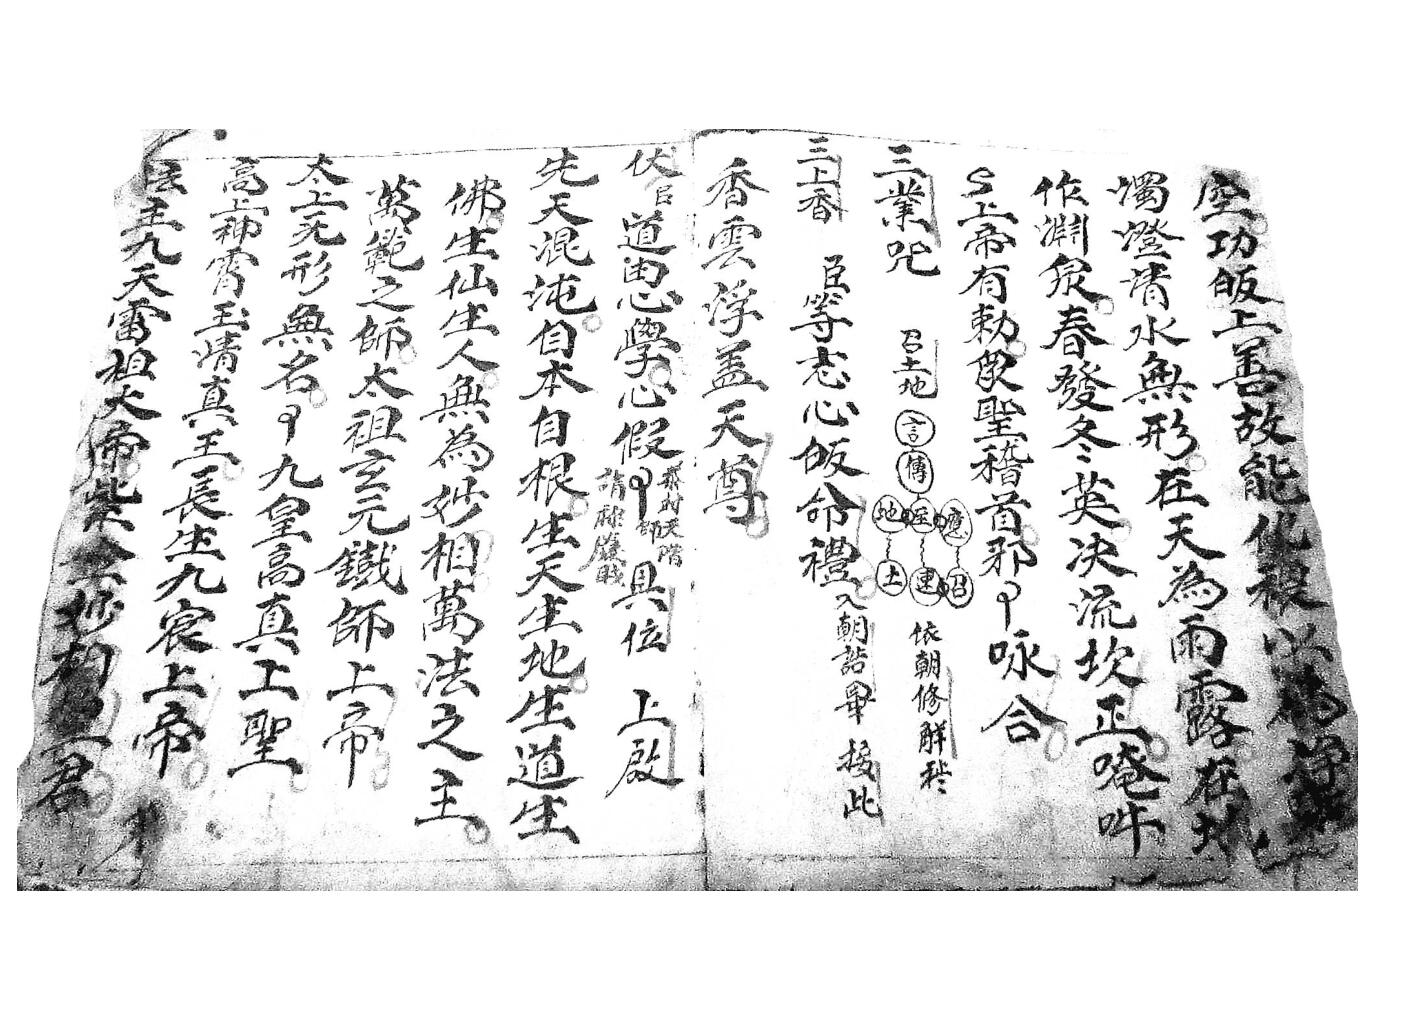 空功皈上善故能化
濁澄清水無形在天為雨露在地
作淵泉春發冬英决流坎正唵吽
上帝有勅眾聖稽首邪咏合
三業咒 召土地 言傳
地 至 應
土 速 召
依朝修解秽
三上香 臣等志心皈命禮 入朝誥畢 接此
香雲浮盖天尊
伏以 道由心學心假 師 具位 上啟
先天混沌自本自根生天生地生道生
佛生仙生人無為妙相萬法之主
萬範之師太祖玄元鐵師上帝
太上无形無名 九皇高真上聖
高上神霄玉清真王長生九宸上帝
法主九天雷祖大帝紫 君